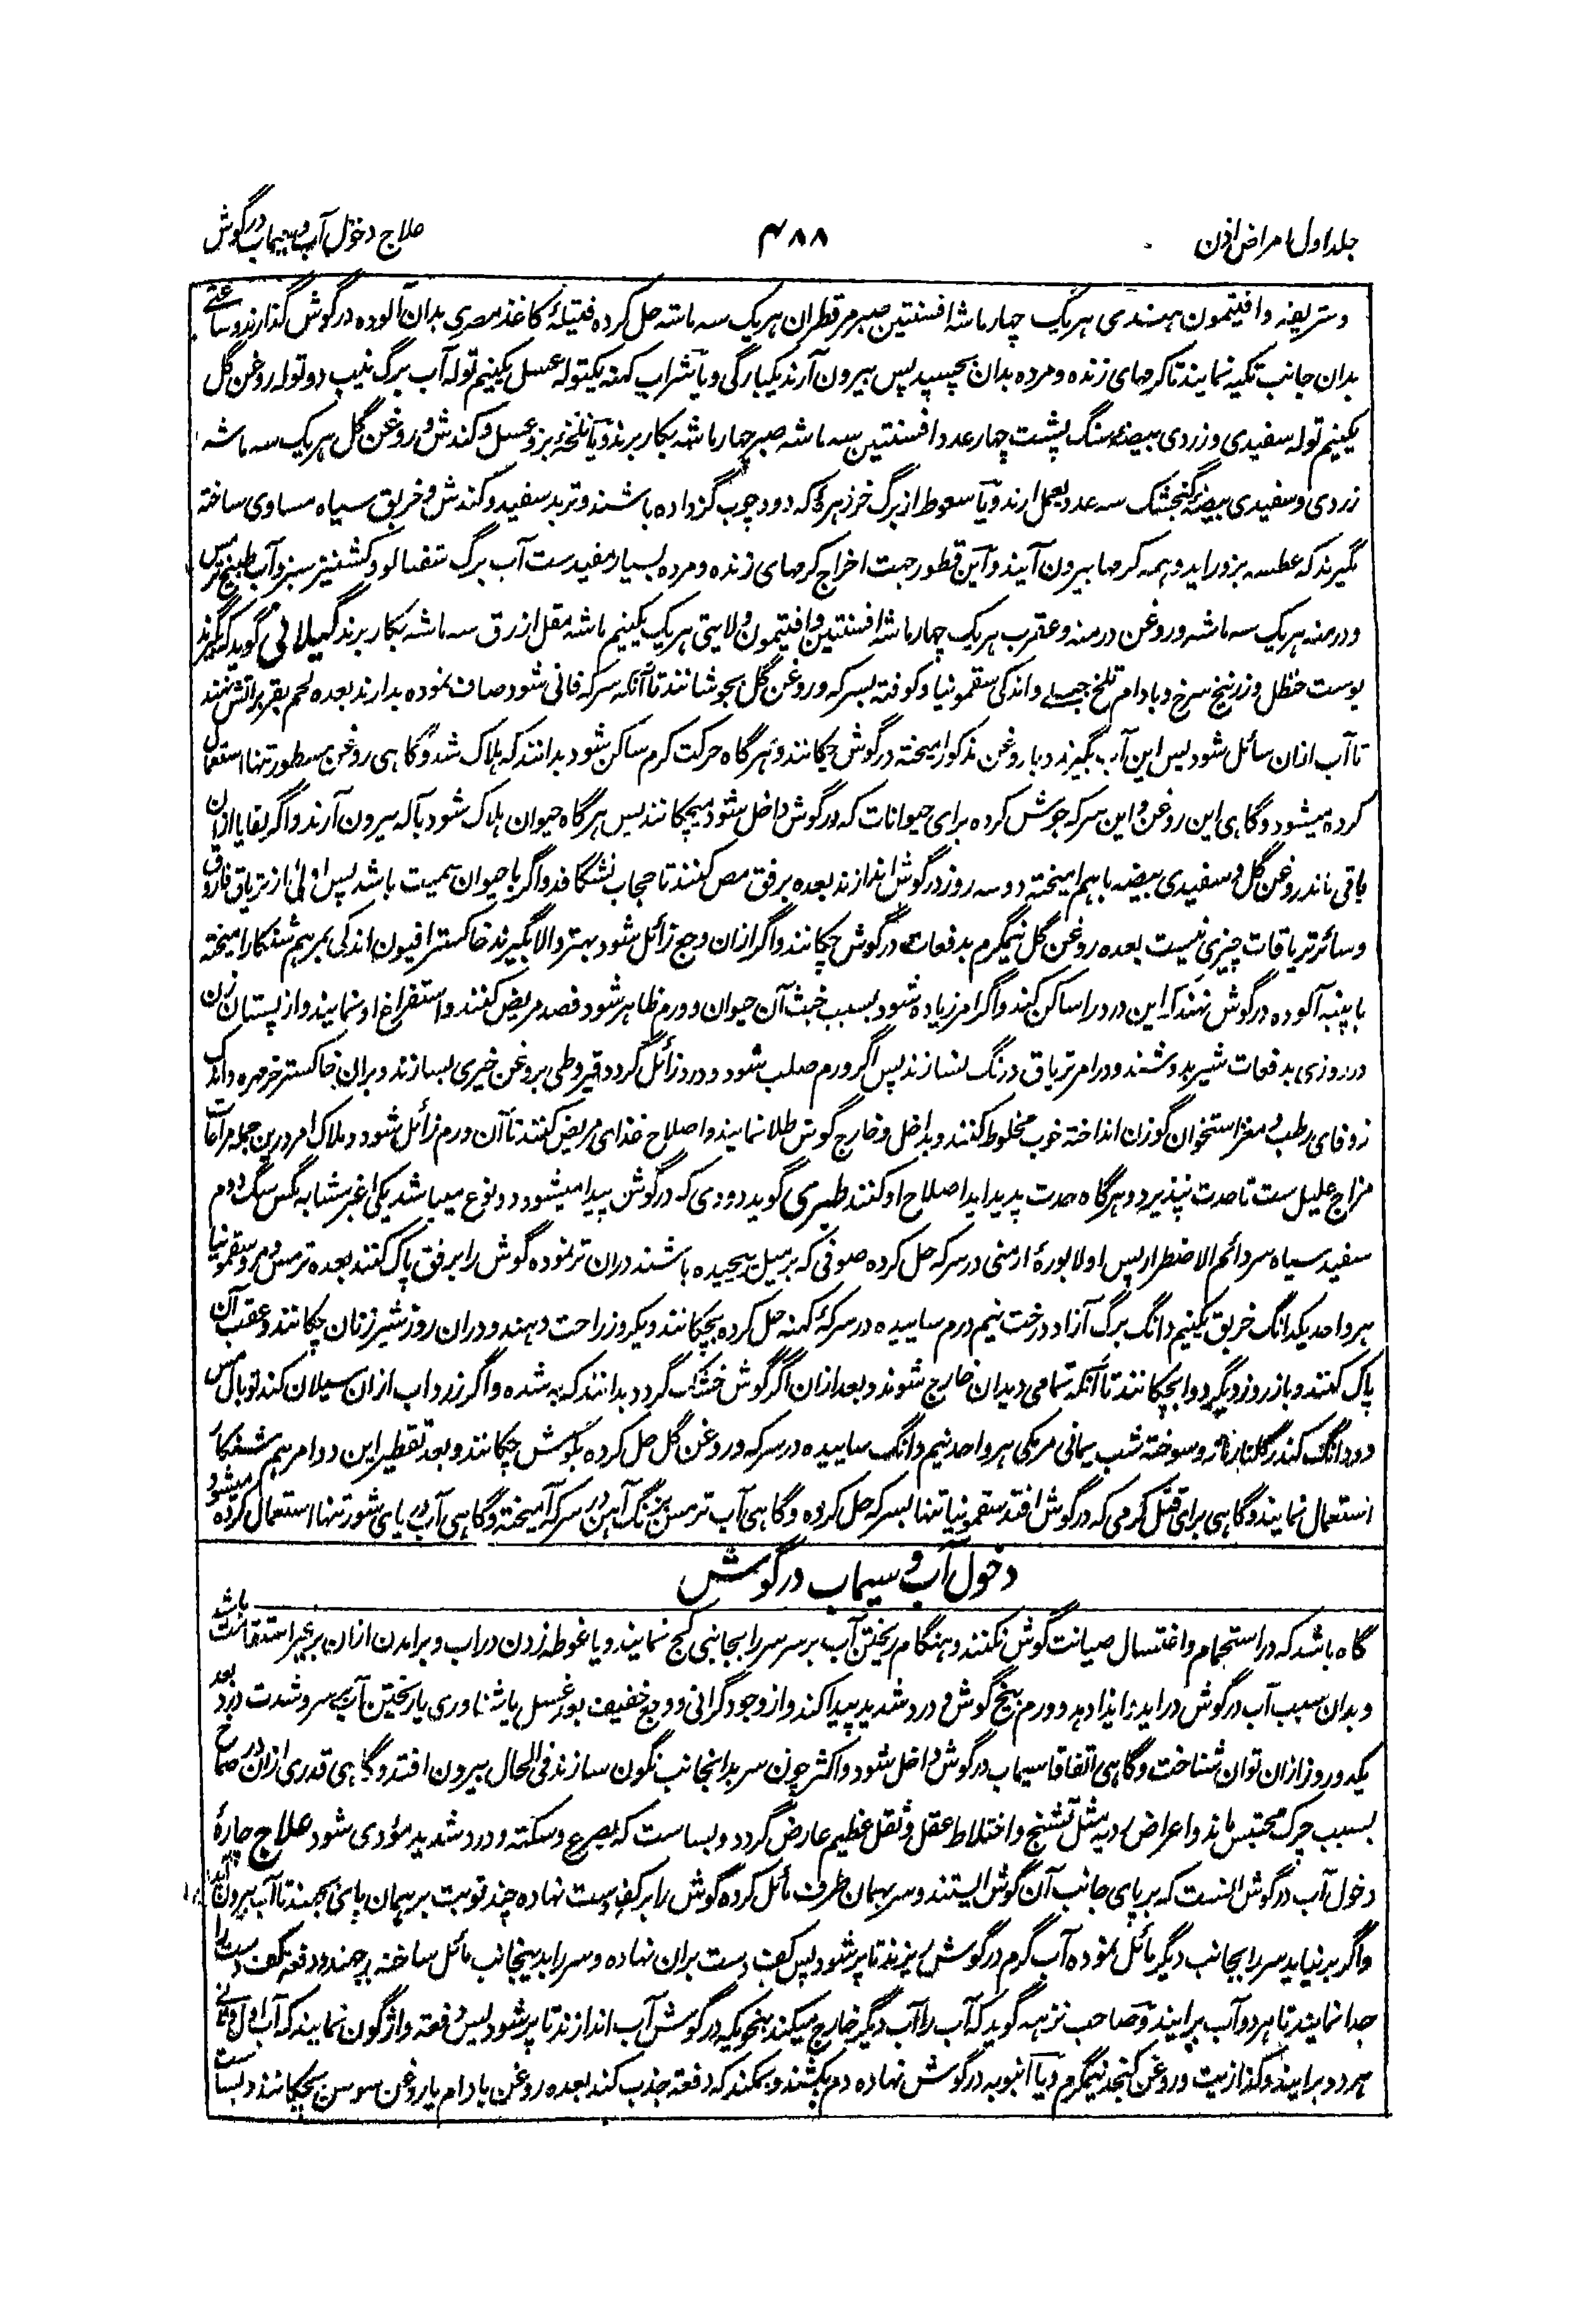 جلد اول امراض اذن
۴۸۸
علاج دخول آب و سیماب در گوش
و شریفه وافتیمون هندی هریک چهار ماشه افسنتین صبر مر قطران هریک سه ماشه حل کرده فتیلهٔ کاغذ مصری بدان آلوده در گوش گذارند و ساعتے
بدان جانب تکیه نمایند تا کرمهای زنده و مرده بدان بچسپد پس بیرون آرند یکبارگی و یا شراب کهنه یکتوله عسل یکنیم توله آب برگ نیب دو توله روغن گل
یکنیم توله سفیدی و زردی بیضهٔ سنگ پشت چهار عدد افسنتین سه ماشه صبر چهار ماشه بکار برند و یا تلخهٔ بز و عسل و کندش و روغن گل هریک سه ماشه
زردی و سفیدی بیضهٔ کنجشک سه عدد بعمل آرند و یا سعوط از برگ خرزهره که دود چوب گز داده باشند و تربد سفید و کندش و خربق سیاه مساوی ساخته
بگیرند که عطسه بزور آید و همه کرمها بیرون آیند و این قطور جهت اخراج کرمهای زنده و مرده بسیار مفید ست آب برگ شفتالو و کشنیز سبز و آب طبیخ ترمس
و درمنه هریک سه ماشه و روغن درمنه و عقرب هریک چهار ماشه افسنتین و افتیمون ولایتی هریک یکنیم ماشه مقل ازرق سه ماشه بکار برند گیلانی گوید که بگیرند
پوست حنظل و زرنیخ سرخ و بادام تلخ جبلے و اندکی سقمونیا و کوفته بسرکه و روغن گل بجوشانند تا آنکه سرکه فانی شود صاف نموده بدارند بعده لحم بقر بر آتش نهند
تا آب ازان سائل شود پس این آب بگیرند و با روغن مذکور امیخته در گوش چکانند و هرگاه حرکت کرم ساکن شود بدانند که هلاک شد و گاهی روغن مسطور تنها استعمال
کرده میشود و گاهی این روغن و این سرکه جوش کرده برای حیوانات که در گوش داخل شود میچکانند پس هرگاه حیوان هلاک شود بآله بیرون آرند و اگر بقایا ازان
باقی ماند روغن گل و سفیدی بیضه باهم امیخته دو سه روز در گوش اندازند بعده برفق مص کنند تا حجاب نشگافد و اگر با حیوان سمیت باشد پس اولی از تریاق فاروق
و سائر تریاقات چیزی نیست بعده روغن گل نیمگرم بدفعات در گوش چکانند و اگر ازان وجع زائل شود بهتر والا بگیرند خاکستر افیون اندکی بمرهم شنگار امیخته
با پنبه آلوده در گوش نهند که این درد را ساکن کند و اگر امر زیاده شود بسبب خبث آن حیوان و ورم ظاهر شود فصد مریض کنند و استفراغ او نمایند و از پستان زن
در روزی بدفعات شیر بدوشند و در امر تریاق درنگ نسازند پس اگر ورم صلب شود و درد زائل گردد قیروطی بروغن خیری بسازند و بران خاکستر خرمهره و اندک
زوفای رطب و مغز استخوان گوزن انداخته خوب مخلوط کنند و بداخل و خارج گوش طلا نمایند و اصلاح غذای مریض کنند تا آن ورم زائل شود و ملاک امر درین جمله مراعات
مزاج علیل ست تا حدت نپذیرد و هرگاه حدت پدید آید اصلاح او کنند طبری گوید دودی که در گوش پیدا میشود دو نوع میباشد یکی اغبر مشابه بمگس سگ دوم
سفید سیاه سر دائم الاضطراب پس اولا بورهٔ ارمنی در سرکه حل کرده صوفی که بر میل پیچیده باشند دران تر نموده گوش را برفق پاک کنند بعده ترمس و مر و سقمونیا
هر واحد یکدانگ خربق یکنیم دانگ برگ آزاد درخت نیم درم ساییده در سرکهٔ کهنه حل کرده بچکانند و یکروز راحت دهند و دران روز شیر زنان چکانند و عقب آن
پاک کنند و باز روز دیگر دوا بچکانند تا آنکه تمامی دیدان خارج شوند و بعد ازان اگر گوش خشک گردد بدانند که به شده و اگر زرداب ازان سیلان کند توبال مس
دو دانگ کندر گلنار تازه و سوخته شب یمانی مرمکی هر واحد نیم دانگ ساییده در سرکه و روغن گل حل کرده بگوش چکانند و بعد تقطیر این دوا مرهم شنگار
استعمال نمایند و گاهی برای قتل کرمی که در گوش افتد سقمونیا تنها بسرکه حل کرده و گاهی آب ترمس بزنگ آهن در سرکه آمیخته و گاهی آب دریای شور تنها استعمال کرده میشود
دخول آب و سیماب در گوش
گاه باشد که در استحمام و اغتسال صیانت گوش نکنند و هنگام ریختن آب بر سر سر را بجانبی کج نمایند و یا غوطه زدن در آب و برامدن ازان بر غیر استقامت باشد
و بدان سبب آب در گوش دراید و ایذا دهد و ورم بیخ گوش و درد شدید پیدا کند و از وجود گرانی و وجع خفیف بود غسل یا شناوری یا ریختن آب بر سر و شدت درد بعد
یکدو روز ازان توان شناخت و گاهی اتفاقا سیماب در گوش داخل شود و اکثر چون سر بدانجانب نگون سازند فی الحال بیرون افتد و گاهی قدری ازان در صماخ
بسبب چرک محتبس ماند و اعراض ردیه مثل تشنج و اختلاط عقل و ثقل عظیم عارض گردد و بسا ست که بصرع و سکته و درد شدید مؤدی شود علاج چارهٔ
دخول آب در گوش انست که بر پای جانب آن گوش ایستند و سر بهمان طرف مائل کرده گوش را بر کف دست نهاده چند نوبت بر همان پای بجهند تا آب بیرون آید
و اگر برنیاید سر را بجانب دیگر مائل نموده آب گرم در گوش ریزند تا پر شود پس کف دست بران نهاده و سر را بدینجانب مائل ساخته برجهند و دفعة کف دست را
جدا نمایند تا هر دو آب برایند و صاحب نزهه گوید که آب را آب دیگر خارج میکند بنحویکه در گوش آب اندازند تا پر شود پس دفعة واژگون نمایند که آب اول و ثانے
هر دو برایند و کذا زیت و روغن کنجد نیمگرم و یا انبوبه در گوش نهاده دم بکشند و بمکند که دفعة جذب کند بعده روغن بادام یا روغن سوسن بچکانند و بسا ست